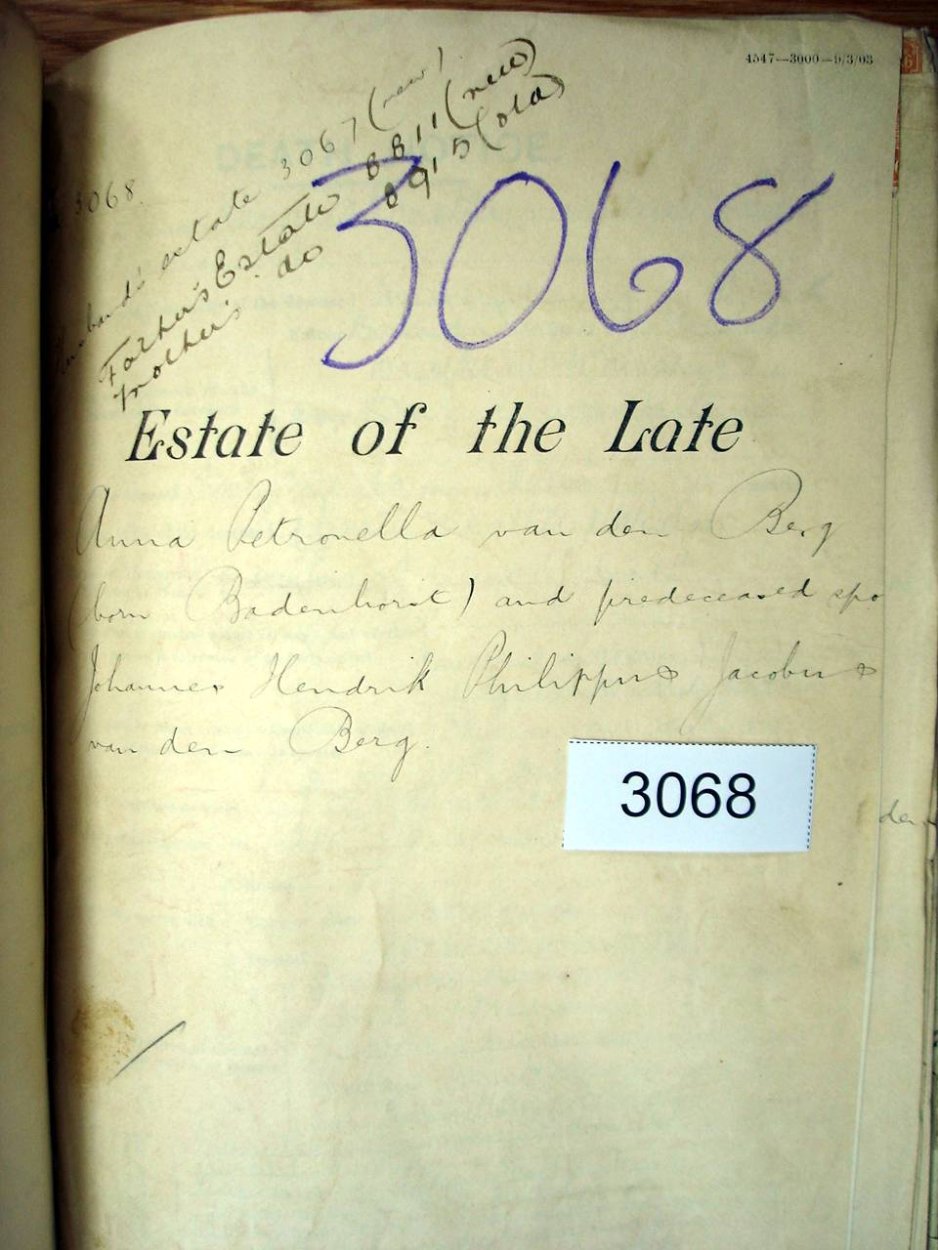 4547—3000—9/3/03
3068
estate 3067 (new)
Father's Estate 8811 (new)
Mother's do 8915 (old)
3068
Estate of the Late
Anna Petronella van den Berg
(born Badenhorst) and predeceased spo
Johannes Hendrik Philippus Jacobus
van den Berg.
3068
den